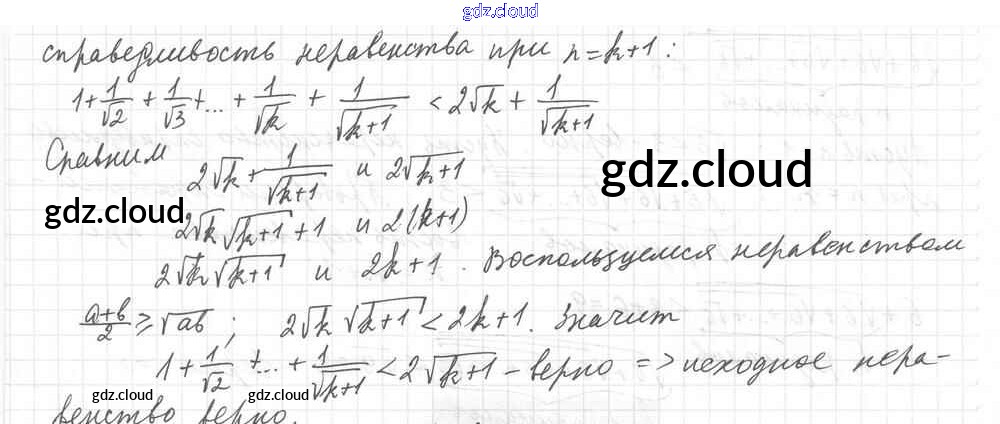 gdz.cloud
справедливость неравенства при n=k+1:
1+1/√2 + 1/√3 +...+ 1/√k + 1/√(k+1) < 2√k + 1/√(k+1)
Сравним
2√k + 1/√(k+1) и 2√(k+1)
gdz.cloud
gdz.cloud
2√k√(k+1) + 1 и 2(k+1)
2√k√(k+1) и 2k+1. Воспользуемся неравенством
(a+b)/2 ≥ √ab; 2√k √(k+1) < 2k+1. Значит
1+1/√2 +...+ 1/√(k+1) < 2√(k+1) - верно => исходное нера-
gdz.cloud
gdz.cloud
венство верно.